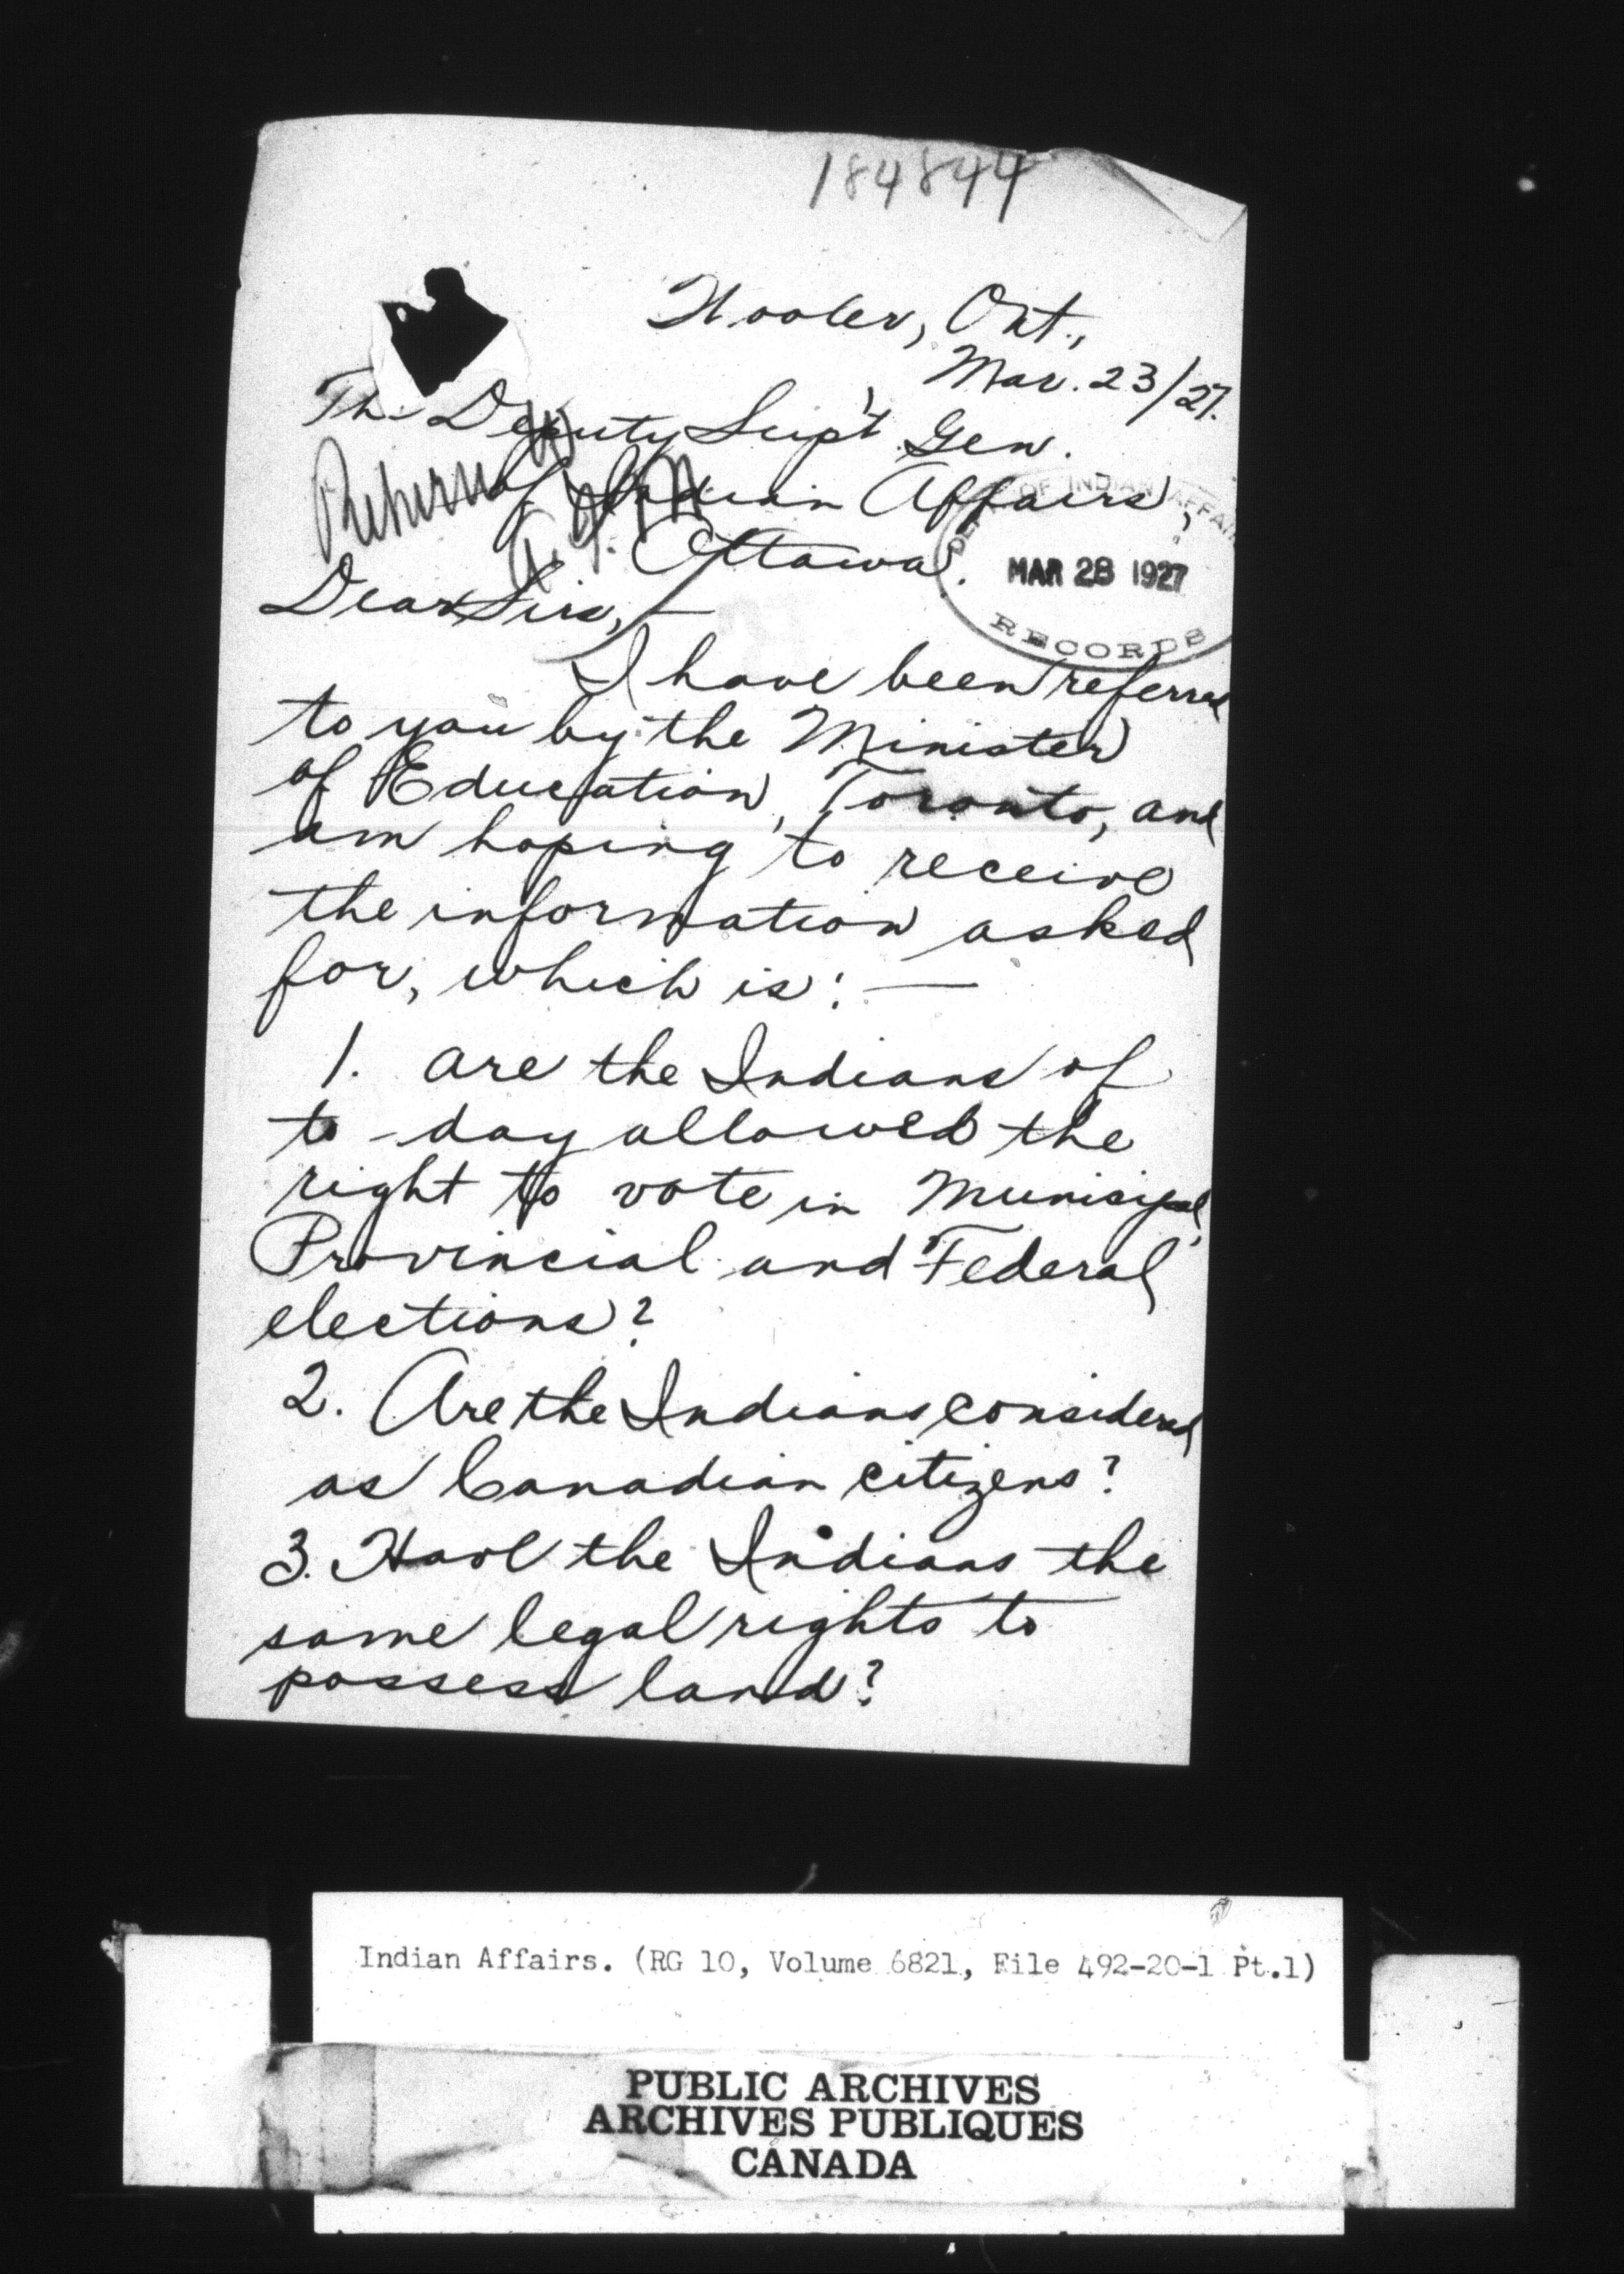 184844
Wooler, Ont.,
Mar. 23/27.
The Deputy Sup't Gen.
of Indian Affairs,
Ottawa.
DEPT. OF INDIAN AFFAIRS
MAR 28 1927
RECORDS
Dear Sirs,—
I have been referred
to you by the Minister
of Education, Toronto, and
am hoping to receive
the information asked
for, which is:—
1. are the Indians of
to-day allowed the
right to vote in Municipal,
Provincial and Federal
elections?
2. Are the Indians considered
as Canadian citizens?
3. Have the Indians the
same legal rights to
possess land?
Indian Affairs. (RG 10, Volume 6821, File 492-20-1 Pt.1)
PUBLIC ARCHIVES
ARCHIVES PUBLIQUES
CANADA